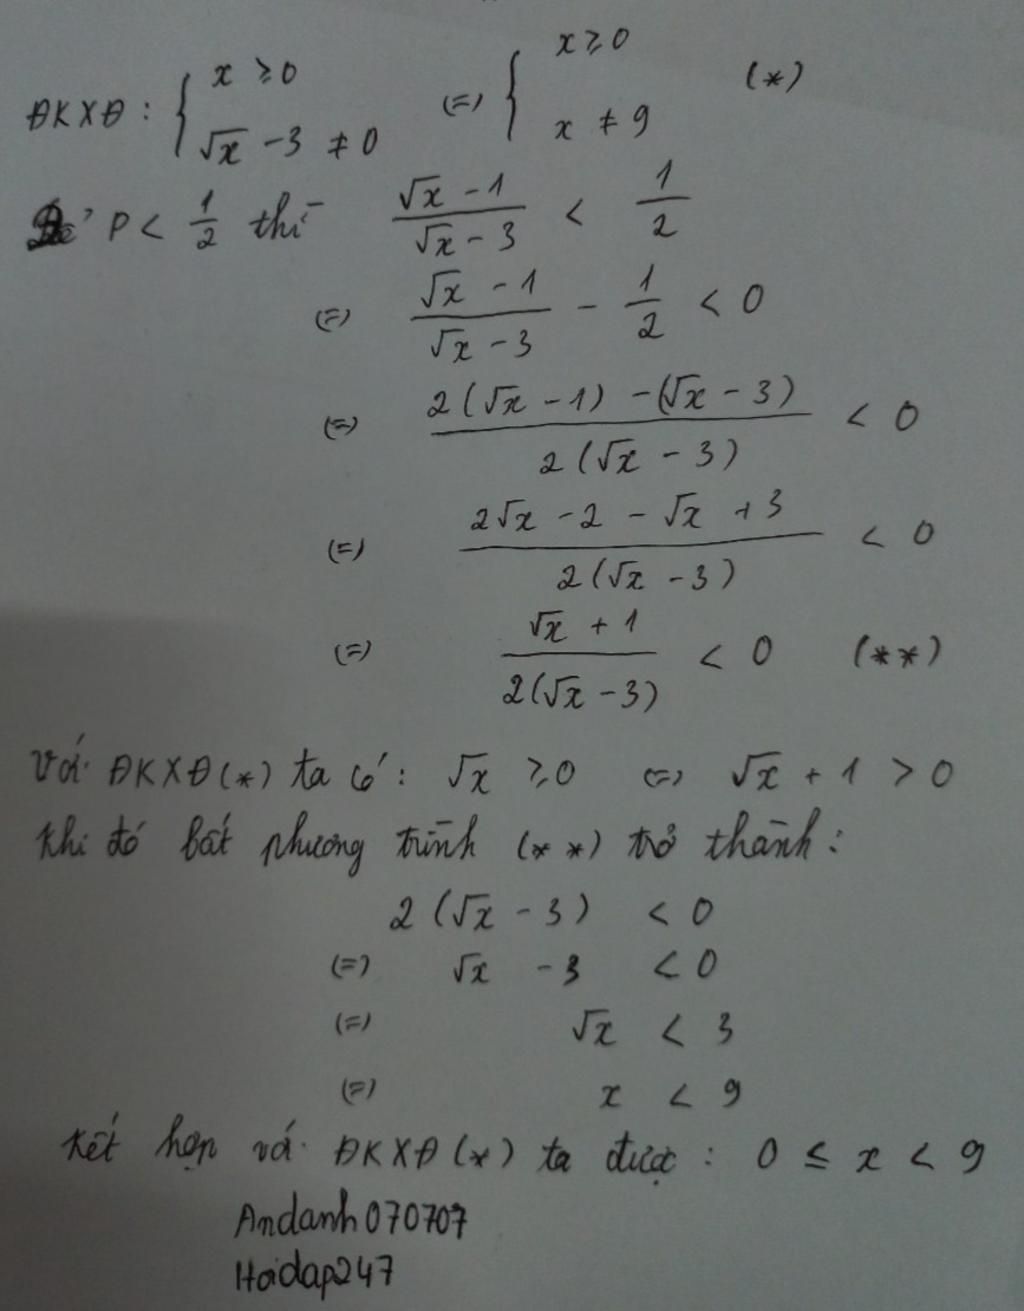 ĐKXĐ: { x ≥ 0 ; √x - 3 ≠ 0 (=) { x ≥ 0 ; x ≠ 9 (*)
Để P < 1/2 thì (√x - 1)/(√x - 3) < 1/2
(=) (√x - 1)/(√x - 3) - 1/2 < 0
(=) (2(√x - 1) - (√x - 3))/(2(√x - 3)) < 0
(=) (2√x - 2 - √x + 3)/(2(√x - 3)) < 0
(=) (√x + 1)/(2(√x - 3)) < 0 (**)
Với ĐKXĐ(*) ta có: √x ≥ 0 (=) √x + 1 > 0
Khi đó bất phương trình (**) trở thành:
2(√x - 3) < 0
(=) √x - 3 < 0
(=) √x < 3
(=) x < 9
Kết hợp với ĐKXĐ(*) ta được: 0 ≤ x < 9
Andanh070707
Hoidap247